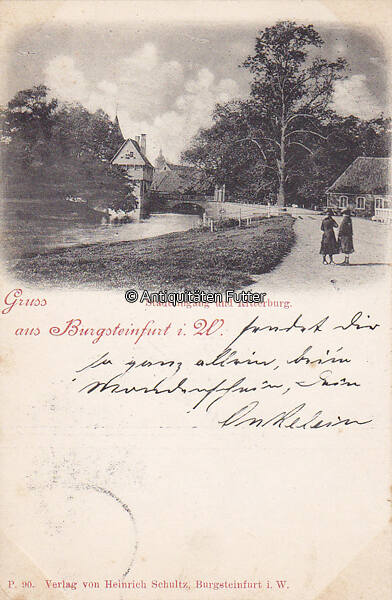 © Antiquitäten Futter
Stadteingang und Ritterburg.
Gruss
aus Burgsteinfurt i. W.
sendet Dir
so ganz allein, beim
Mondenschein, Dein
Onkelein
P. 90. Verlag von Heinrich Schultz, Burgsteinfurt i. W.